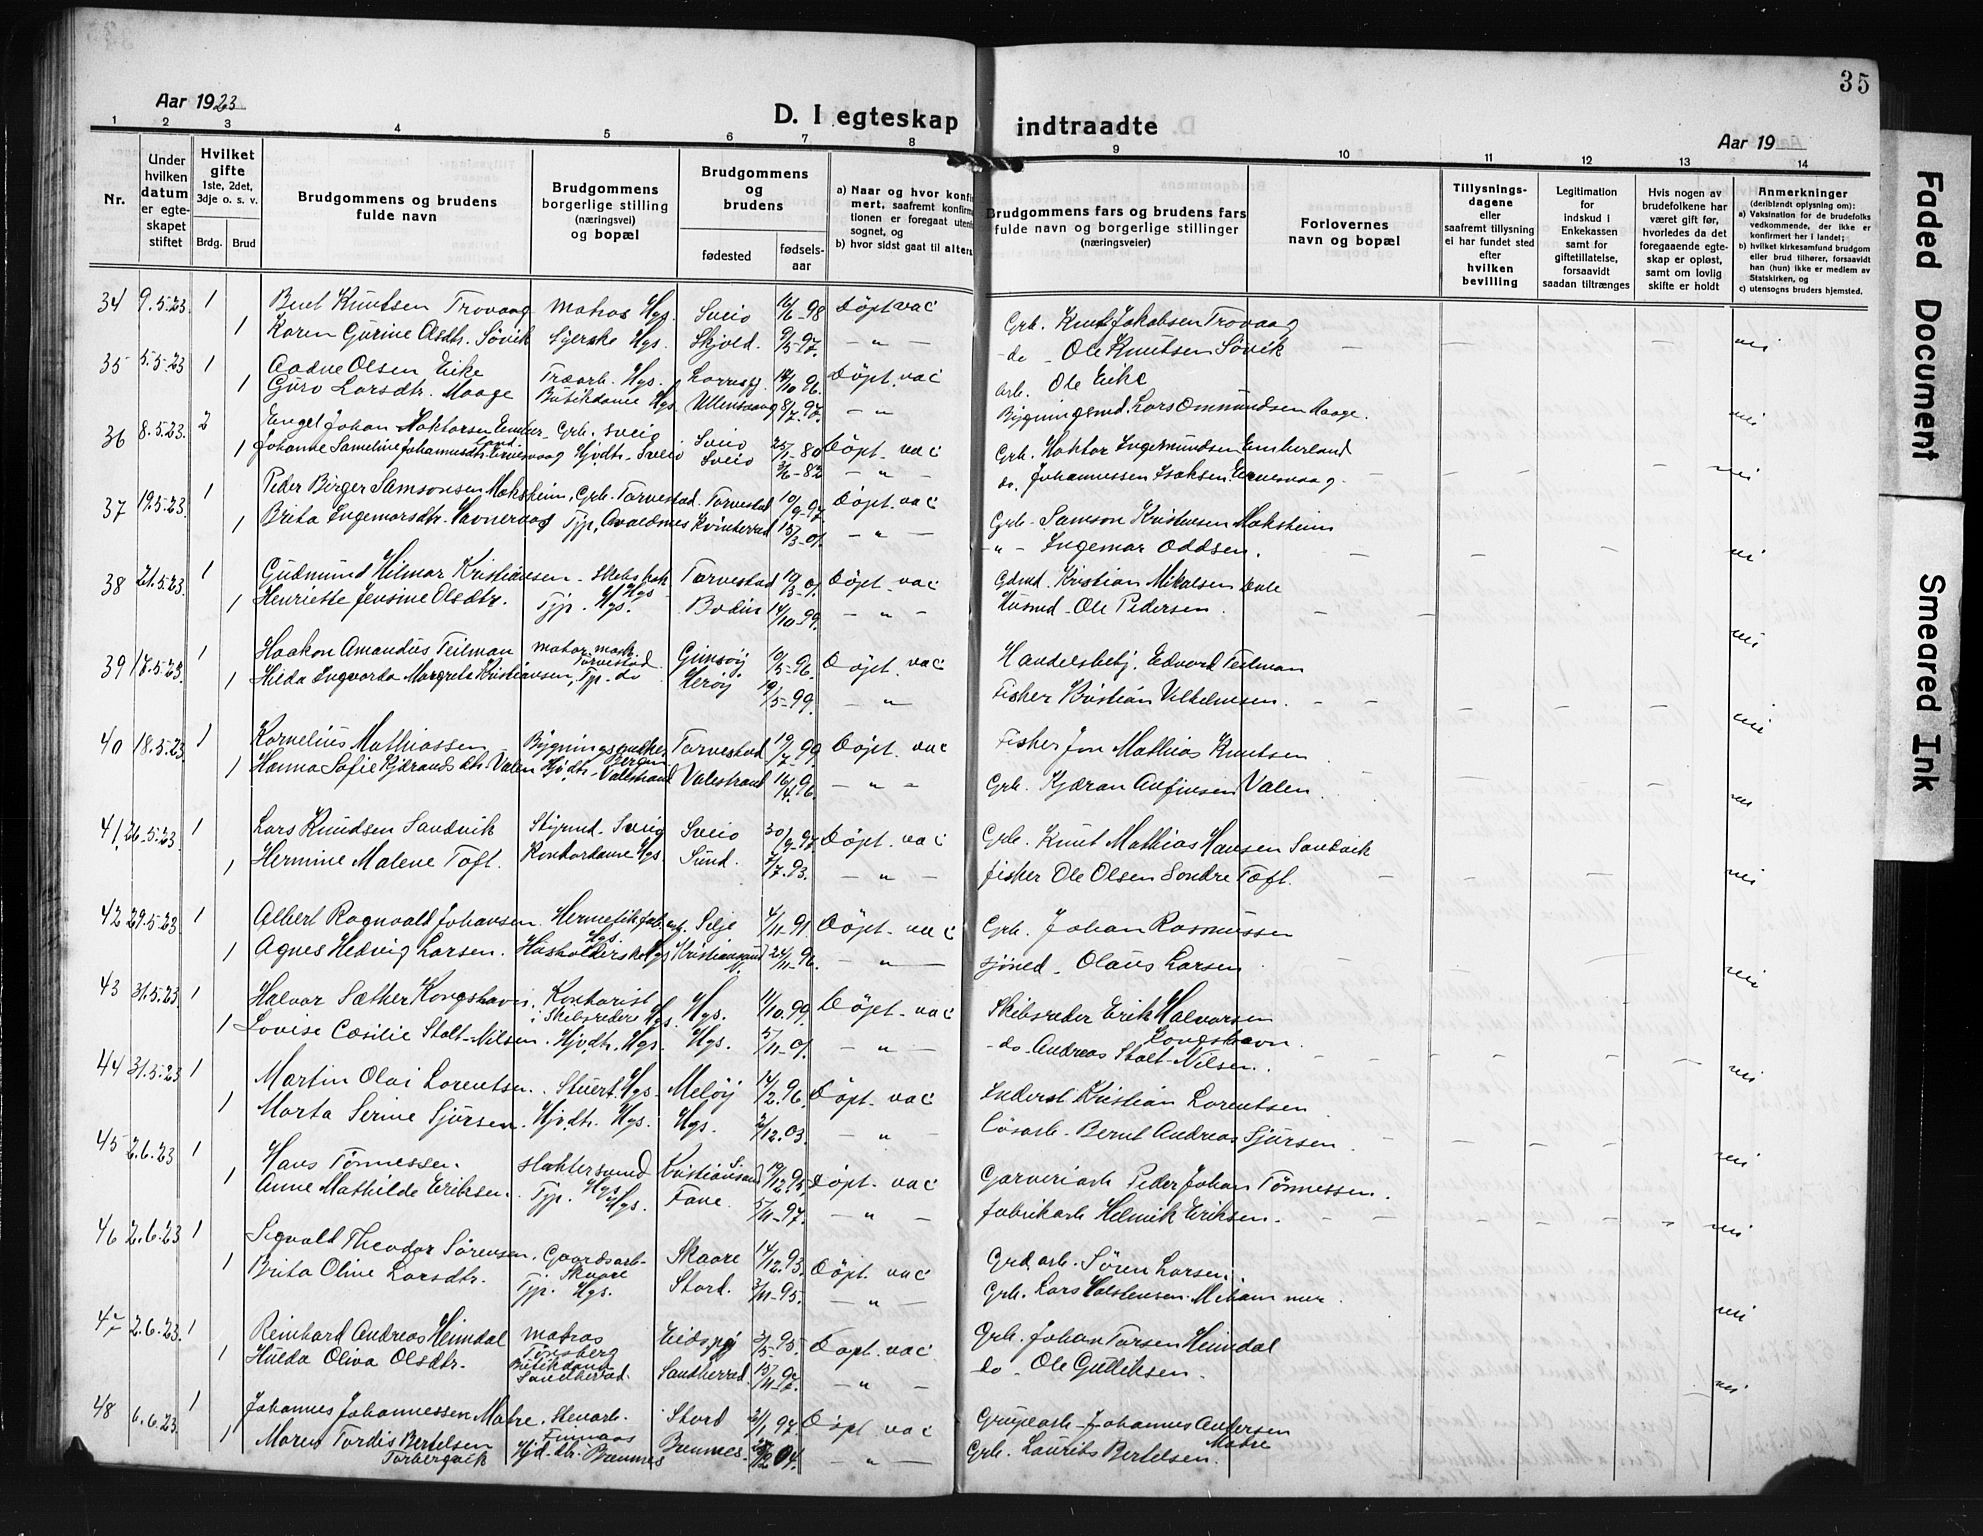 35
Aar 1923
D. I egteskap indtraadte
Aar 19
1 2 3 4 5 6 7 8 9 10 11 12 13 14
Nr.
Under hvilken datum er egteskapet stiftet
Hvilket gifte
1ste, 2det, 3dje o. s. v.
Brdg. Brud
Brudgommens og brudens fulde navn
Brudgommens borgerlige stilling (næringsvei) og bopæl
Brudgommens og brudens
fødested
fødselsaar
a) Naar og hvor konfirmert, saafremt konfirmationen er foregaat
sognet, og
b) hvor sidst gaat til alters
Brudgommens fars og brudens fars fulde navn og borgerlige stillinger (næringsveier)
Forlovernes navn og bopæl
Tillysningsdagene eller saafremt tillysning ei har fundet sted efter hvilken bevilling
Legitimation for indskud i Enkekassen samt for giftetillatelse, forsaavidt saadan tiltrænges
Hvis nogen av brudefolkene har været gift før, hvorledes da det foregaaende egteskap er opløst, samt om lovlig skifte er holdt
Anmerkninger
(deriblandt oplysning om):
a) Vaksination for de brudefolks vedkommende, der ikke er konfirmert her i landet;
b) hvilket kirkesamfund brudgom eller brud tilhører, forsaavidt han (hun) ikke er medlem av Statskirken, og
c) utensogns bruders hjemsted.
34 9.5.23 1 Bent Knutsen Trovaag Matros Hgs. Sveio 98 Døpt. vac Grb. Knut Jakobsen Trovaag
1 Karen Gurine Olsdtr. Søvik Syerske Hgs. Skjold. 9/5-97. - " - do - Ole Knutsen Søvik nei
35 5.5.23 1 Aadne Olsen Eike Træarb. Hgs. 96. Døpt. vac Arb. Ole Eike
1 Guro Larsdtr. Maage Butikdame Hgs. Ullensvang 8/7.97. - " Bygningsmd. Lars Ommundsen Maage. nei
36 8.5.23. 2 Engel Johan Haktorsen Emberland. Grb. Sveio Sveio 80 Døpt. vac Grb. Haktor Ingemundsen Emberland
1 Johanne Sameline Johannesdtr. Hjvdtr. Sveio Sveio 3/6-82 - " - do. Johannessen Isaksen nei
37 19.5.23. 1 Peder Birger Samsonsen Moksheim, Grb. Torvestad. Torvestad 10/9-97. Døpt. vac Grb. Samson Kristensen Moksheim
1 Brita Ingemarsdtr. Havnevaag Tjp. Avaldsnes Kvinherred 15/3-01. - " - - " - Ingemar Oddsen. nei
38 21.5.23. 1 Gudmund Hilmar Kristiansen - Hgs Torvestad Døpt. vac Gdmd. Kristian Mikalsen Dale
1 Henriette Jensine Olsdtr. Tjp. Hgs. Bodin 14/10-99. - " - Husmd. Ole Pedersen. nei
39 17.5.23. 1 Haakon Amandus Teilman Torvestad Gimsøy 10/5-96. Døpt. vac Handelsbetj. Edvard Teilman
1 Hilda Ingvarda Margrete Kristiansen, Tjp. do Herøy 19/5-99. - " Fisker Kristian Vilhelmsen. nei
40 18.5.23 1 Kornelius Mathiassen Bergen Torvestad 19/7-99 Døpt. vac Fisker Jon Mathias Knutsen
1 Hanna Sofie Kjæransdtr. Valen Hjvdtr. Valestrand Valestrand 16/4.96. - " - Grb. Kjæran Anfinsen Valen. nei
41 26.5.23. 1 Lars Knudsen Sandvik Styrmd. Sveio Sveio 30/9-97. Døpt. vac Grb. Knut Mathias Hansen Sandvik
1 Hermine Malene Toft. Kontordame Hgs. Sund. 7/7.93. - " - Fisker Ole Olsen Sondre Toft. nei
42 29.5.23 1 Albert Ragnvald Johansen. Hermetikfab. arb. Hgs. Selje 4/11-91 Døpt. vac Grb. Johan Rasmussen
1 Agnes Hedvig Larsen. Husholderske Hgs Kristiansund N. 24/11-96. - " - Sjømd. Olaus Larsen nei
43 31.5.23 1 Halvor Sæther Kongshavn. Kontorist i Skibsrederi Hgs. Hgs. 11/10.99. Døpt. vac Skibsreder Erik Halvorsen Kongshavn.
1 Lovise Cæsilie Stolt-Nilsen. Hjvdtr. Hgs. Hgs. 5/11-01. - " - do. Andreas Stolt-Nilsen. nei
44 31.5.23 1 Martin Olai Lorentsen. Stuert. Hgs. Meløy 14/2.96. Døpt. vac Inderst Kristian Lorentsen
1 Marta Serine Sjursen. Hjvdtr. Hgs. Hgs. 2/12.03. - " - Løsarb. Bernt Andreas Sjursen. nei
45 2.6.23 1 Hans Tønnessen. Slaktersvend Hgs. Kristiansand S. 19/12.95. Døpt. vac Garveriarb Peder Johan Tønnessen.
1 Anne Mathilde Eriksen. Tjp. Hgs. Fane. 5/11-97. - " - Fabrikarb Helmik Eriksen. nei
46 2.6.23 1 Sigvald Theodor Sørensen. Gaardsarb. Skaare Skaare 14/12.93. Døpt. vac Grd. arb. Søren Larsen.
1 Brita Oline Larsdtr. Tjp. Hgs. Stord. 3/11-95. - " - Grb. Lars nei
47 2.6.23. 1 Reinhard Andreas Heimdal Matros Tønsberg 3/5-95. Døpt. vac Grb. Johan Torsen Heimdal
1 Hulda Oliva Olsdtr. Butikdame Sandherred. Sandherred. 15/11-97. - " - do. Ole Gulliksen. nei
48 6.6.23. 1 Johannes Johannessen Matre. Stenarb. Finnaas Stord 2/1 97. Døpt. vac Grubearb. Johannes Andersen Matre
1 Maren Tordis Bertelsen Torbergvik Hjd. dtr. Bremnes Bremnes. 04. - " - Grb. Laurits Bertelsen. nei
Faded Document
Smeared Ink